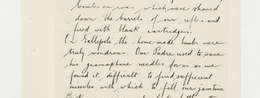 which were shoved
down the barrels of our rifles and
fired with blank cartridges.
On Gallipoli the home made bombs were
truly wondrous. Our Padre used to save
his gramophone needles for us as we
found it difficult to find sufficient
missiles with which to fill our jam tins